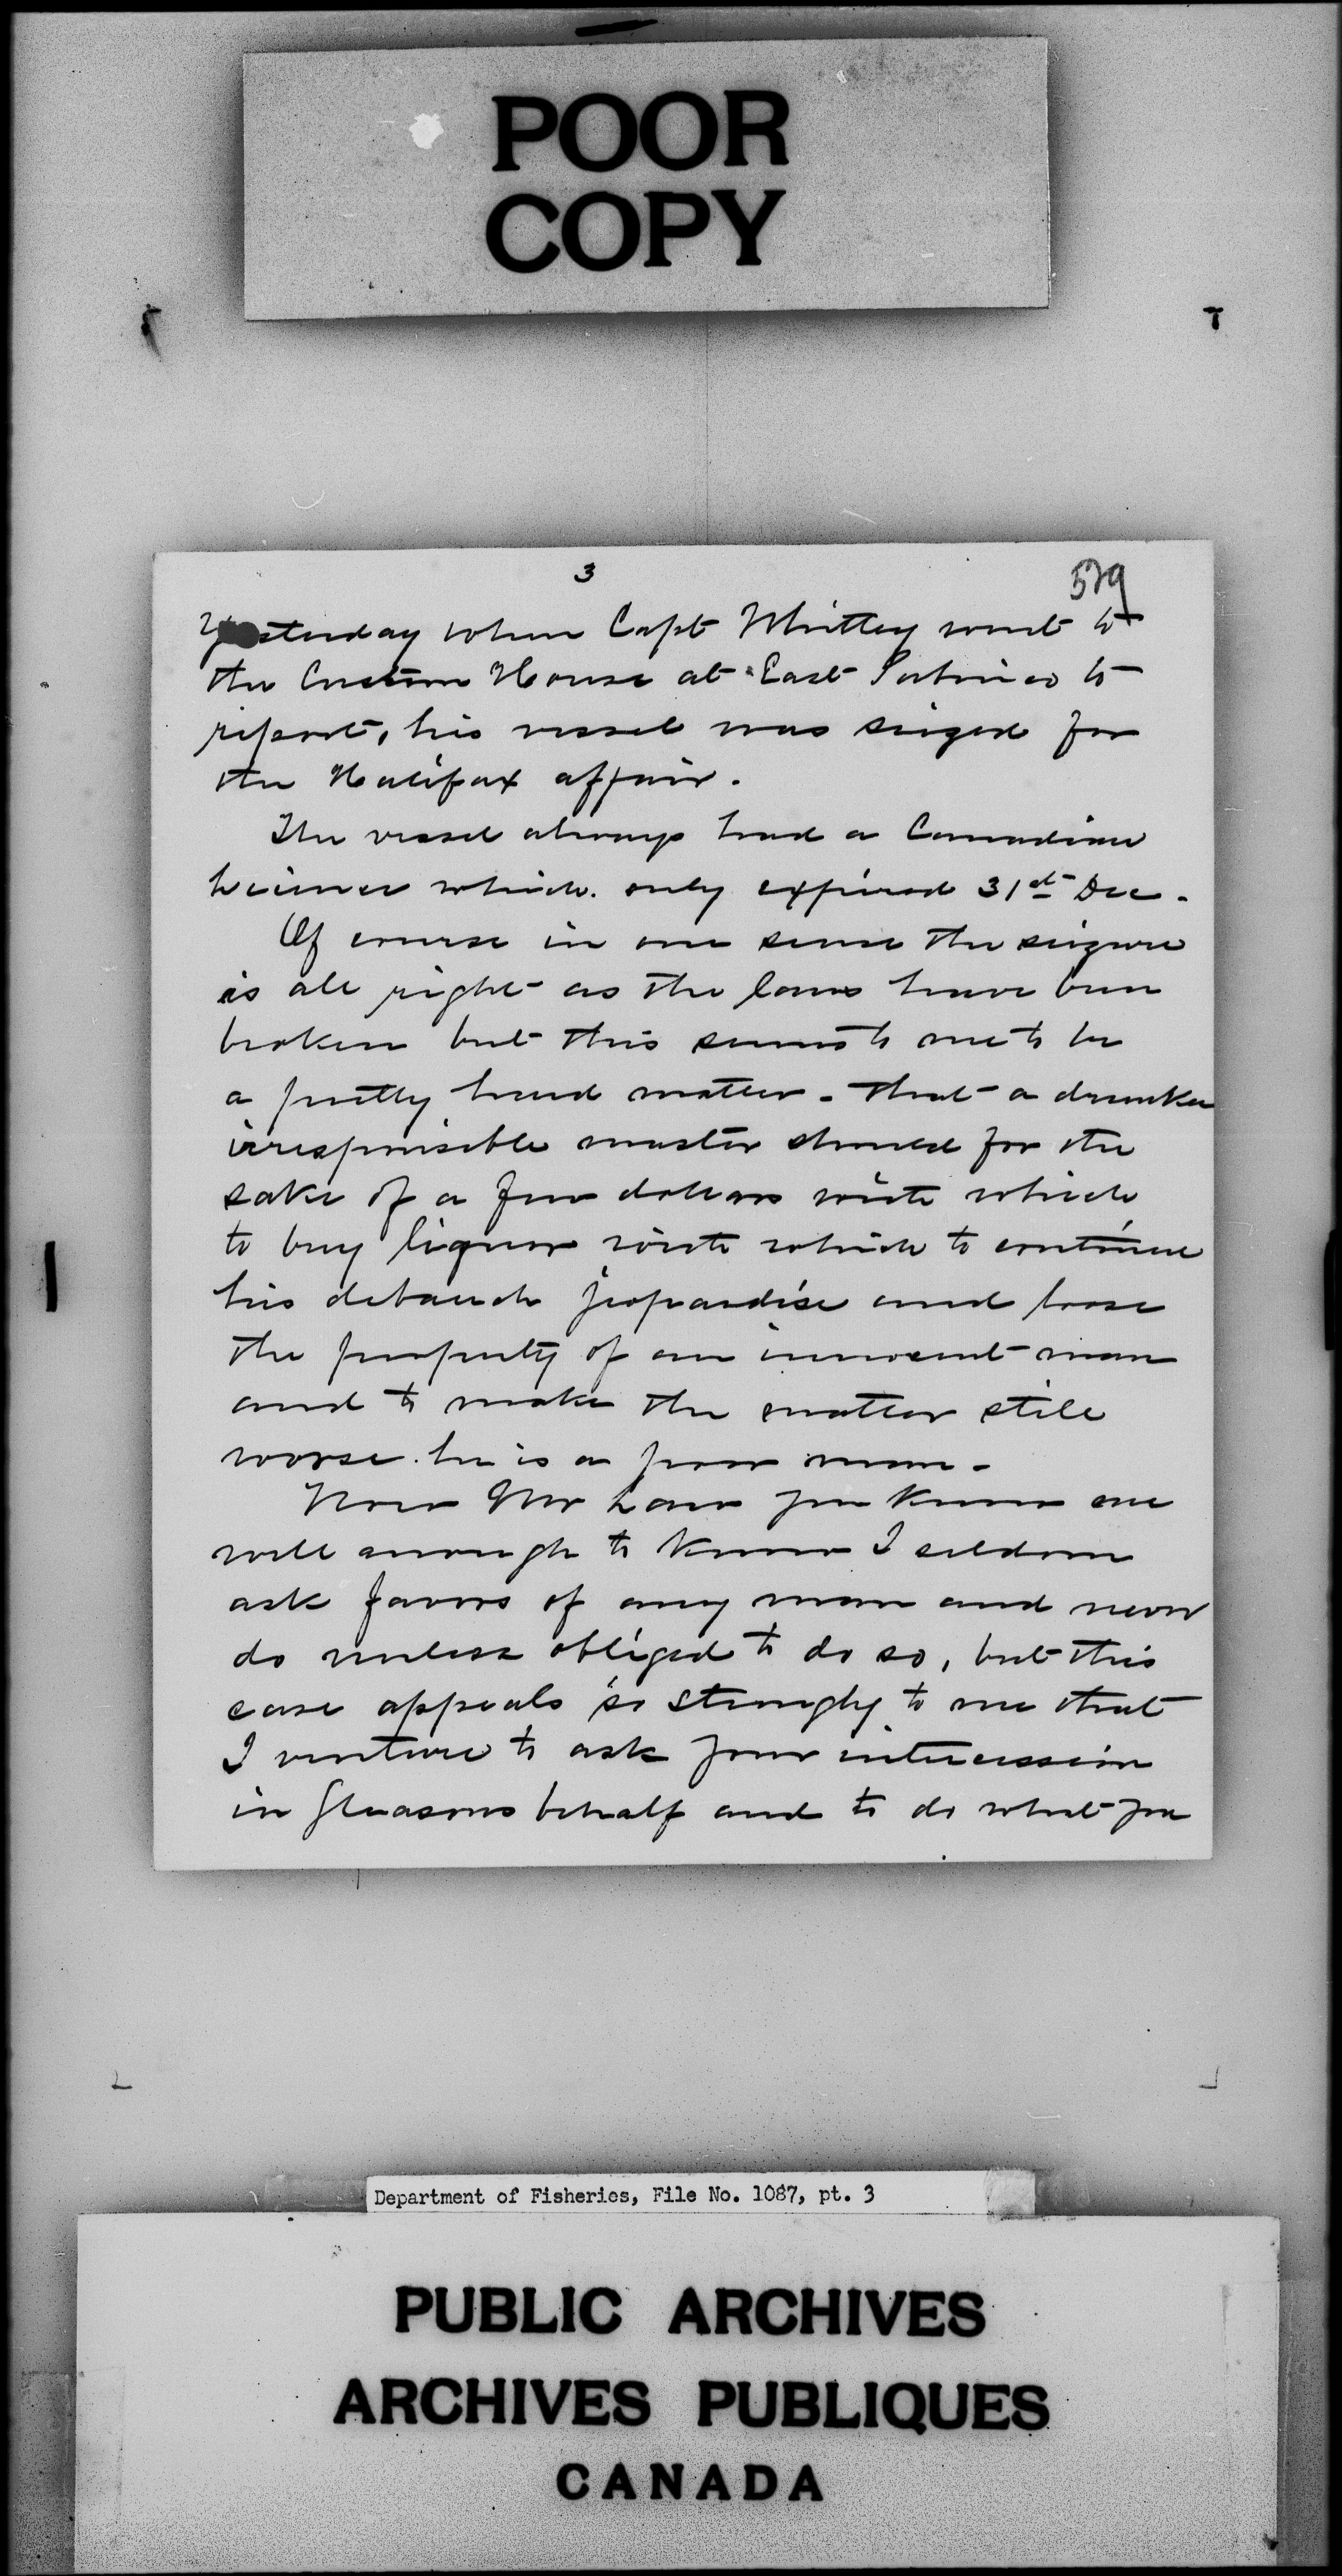 POOR
COPY
3
529
Yesterday when Capt Whitley went to
the Custom House at East Pubnico to
report, his vessel was siezed for
the Halifax affair.
The vessel always had a Canadian
License which. only expired 31st Dec.
Of course in one sense the siezure
is all right as the laws have been
broken but this seems to me to be
a pretty hard matter - that a drunken
irresponsible master should for the
sake of a few dollars with which
to buy liquor with which to continue
his debauch jeopardise and loose
the property of an innocent man
and to make the matter still
worse. he is a poor man -
Now Mr Law you know me
well enough to know I seldom
ask favors of any man and never
do unless obliged to do so, but this
case appeals so strongly to me that
I venture to ask your intercession
in Gleasons behalf and to do what you
Department of Fisheries, File No. 1087, pt. 3
PUBLIC ARCHIVES
ARCHIVES PUBLIQUES
CANADA